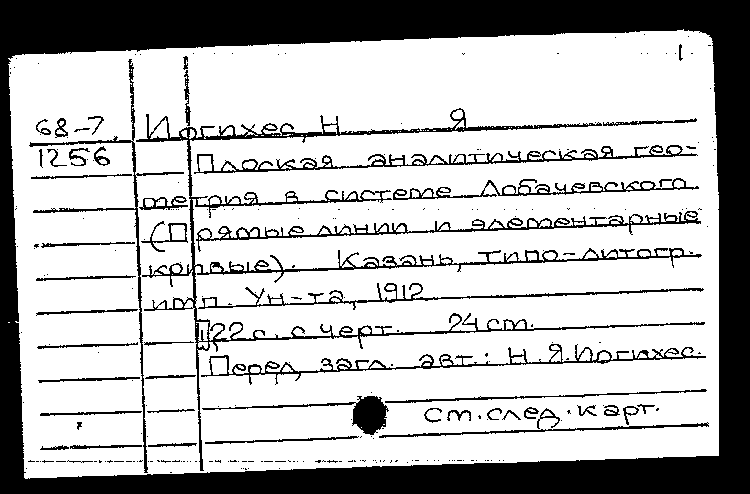 1
68-7. Иогихес, Н Я
1256 Плоская аналитическая гео-
метрия в системе Лобачевского
(Прямые линии и элементарные
кривые). Казань, типо-литогр.
имп. Ун-та, 1912
22 с. с черт. 24 см.
Перед загл. авт.: Н.Я.Иогихес.
см.след.карт.